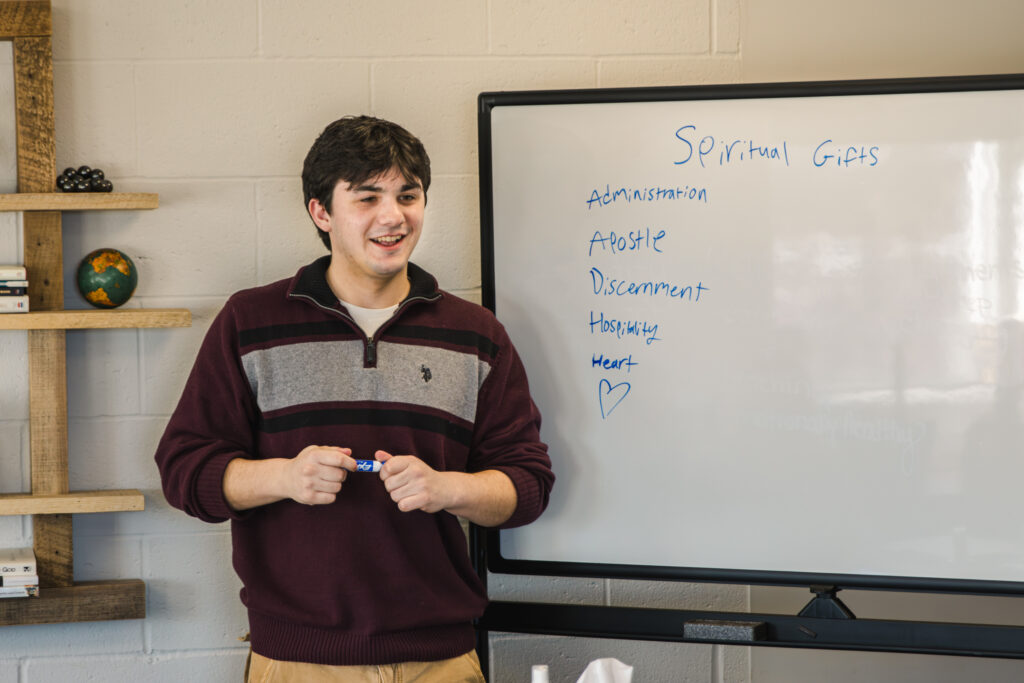 Spiritual Gifts
Administration
Apostle
Discernment
Hospitality
Heart